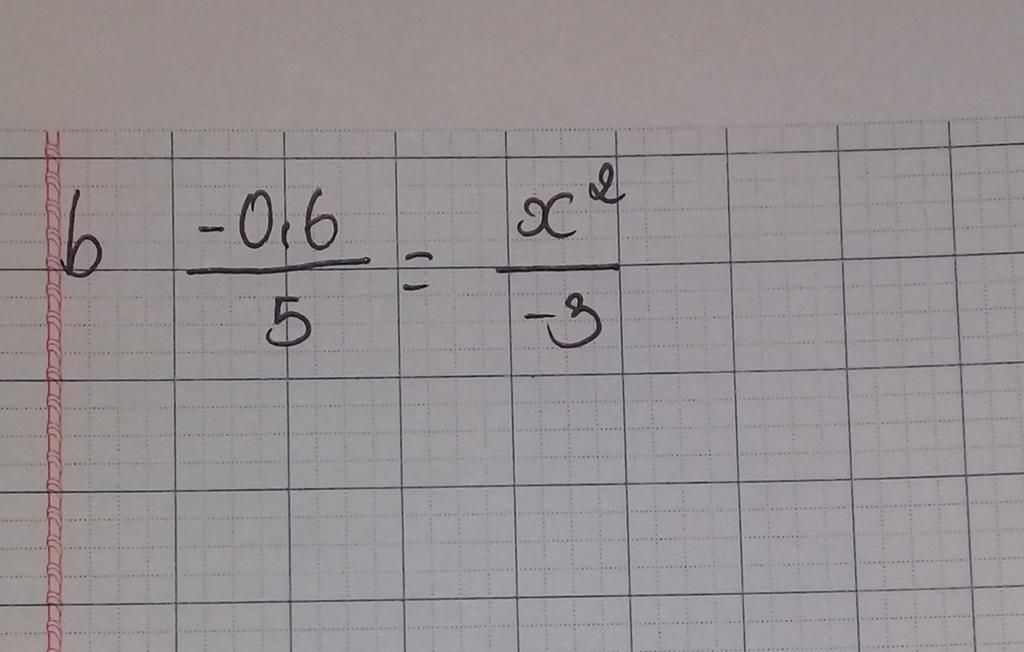 b -0,6/5 = x²/-3